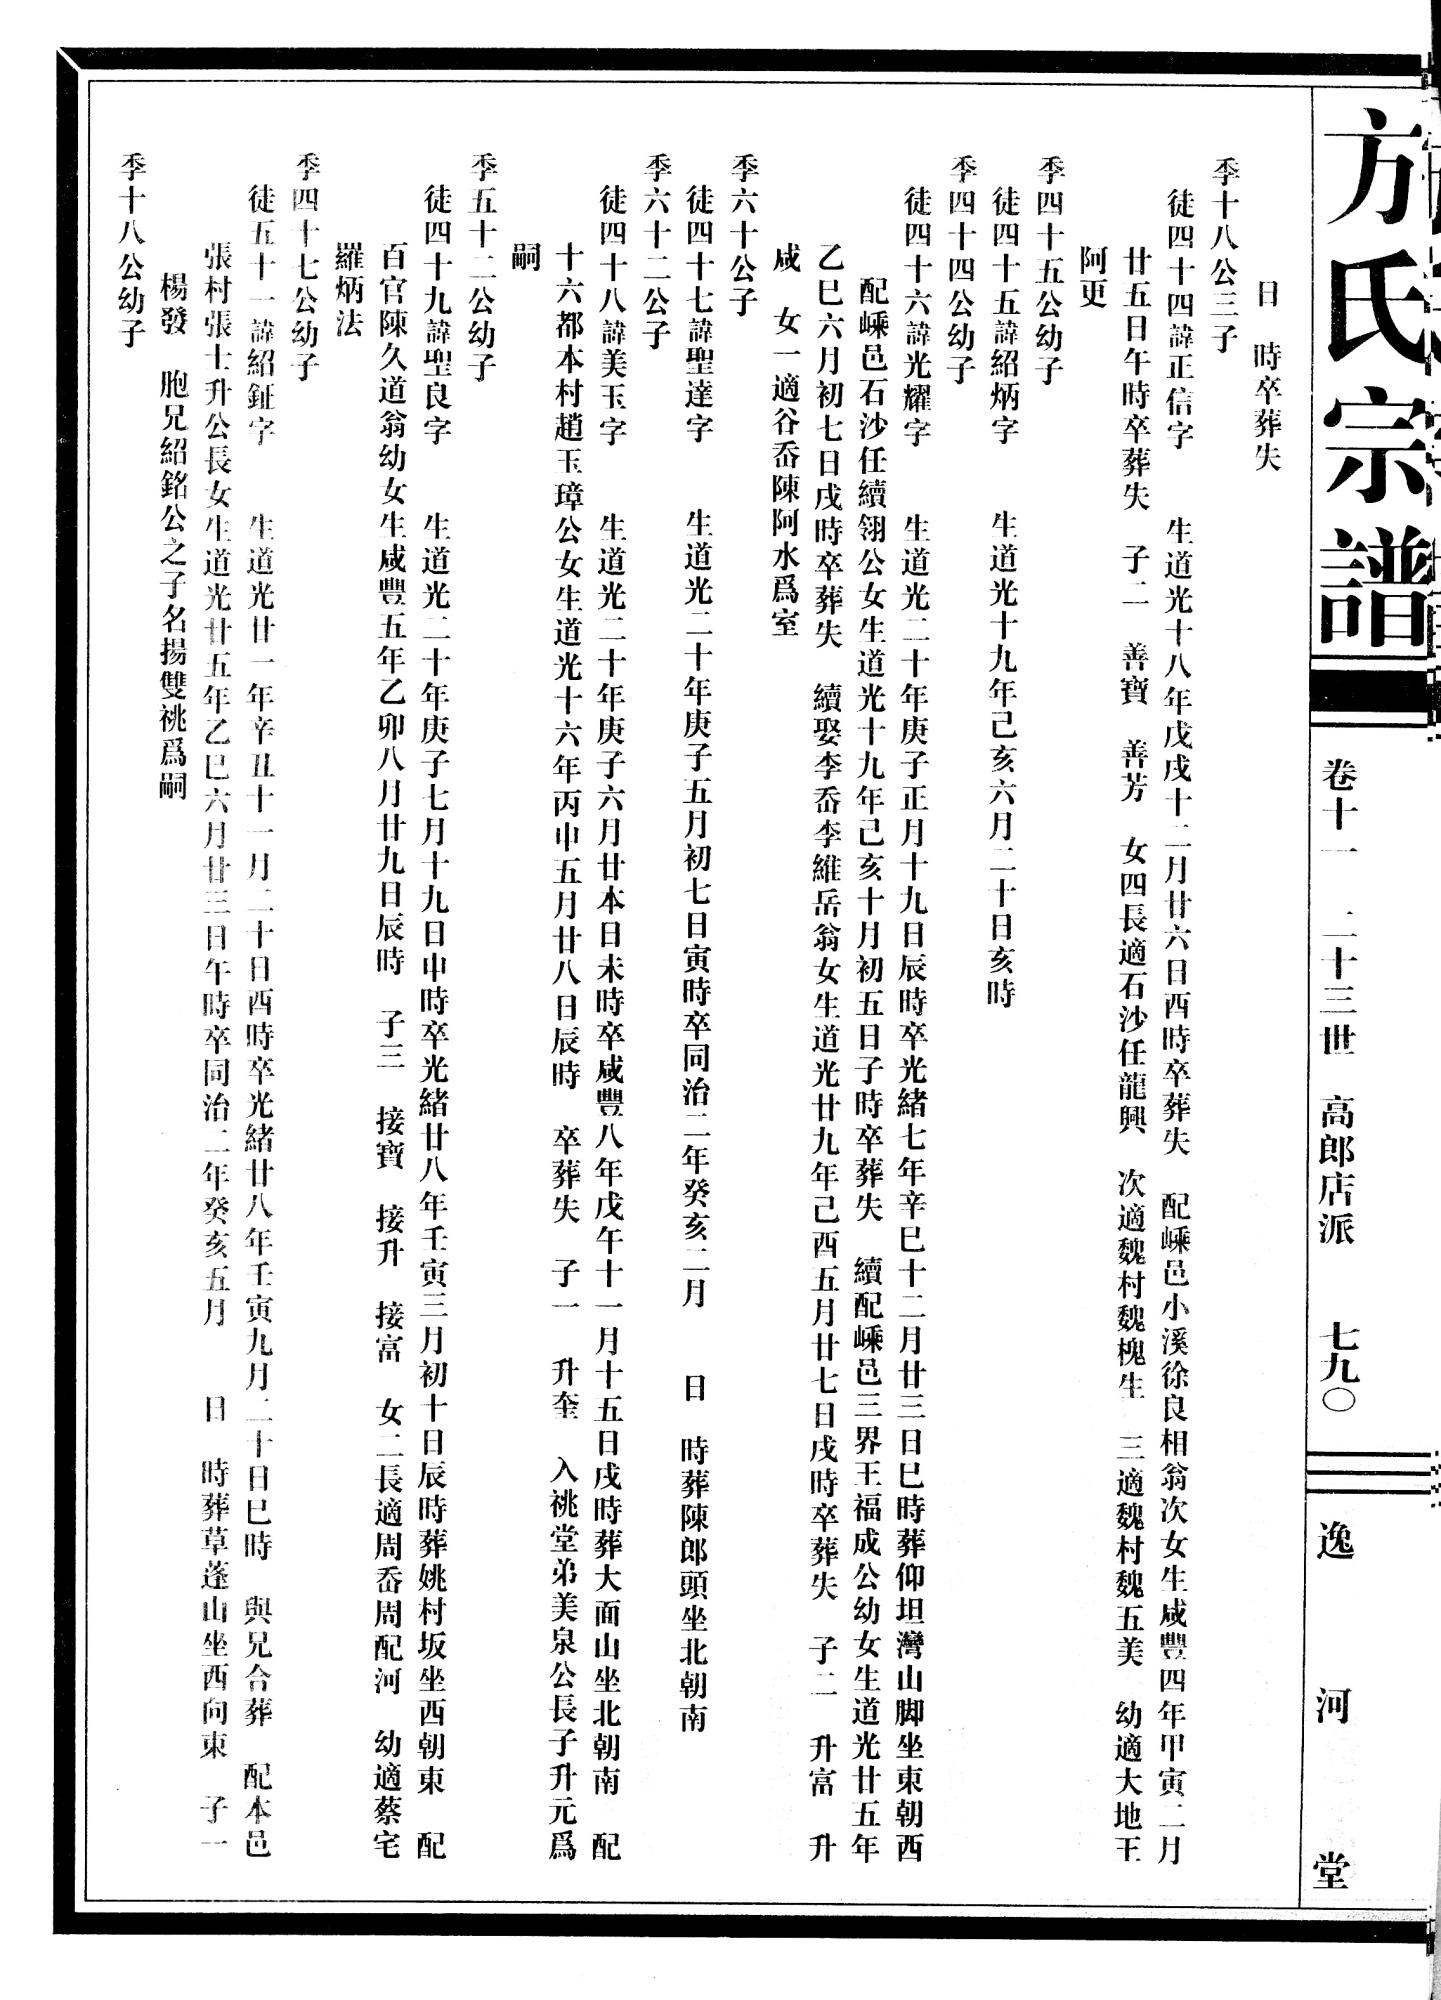 方氏宗譜
卷十一　二十三世　高郎店派　七九〇
逸河堂
日　時卒葬失
季十八公三子
徒四十四諱正信字　生道光十八年戊戌十二月廿六日酉時卒葬失　配嵊邑小溪徐良相翁次女生咸豐四年甲寅二月
廿五日午時卒葬失　子二　善寶　善芳　女四長適石沙任龍興　次適魏村魏槐生　三適魏村魏五美　幼適大地王
阿更
季四十五公幼子
徒四十五諱紹炳字　生道光十九年己亥六月二十日亥時
季四十四公幼子
徒四十六諱光耀字　生道光二十年庚子正月十九日辰時卒光緒七年辛巳十二月廿三日巳時葬仰坦灣山脚坐東朝西
配嵊邑石沙任續翎公女生道光十九年己亥十月初五日子時卒葬失　續配嵊邑三界王福成公幼女生道光廿五年
乙巳六月初七日戌時卒葬失　續娶李岙李維岳翁女生道光廿九年己酉五月廿七日戌時卒葬失　子二　升富　升
咸　女一適谷岙陳阿水爲室
季六十公子
徒四十七諱聖達字　生道光二十年庚子五月初七日寅時卒同治二年癸亥二月　日　時葬陳郎頭坐北朝南
季六十二公子
徒四十八諱美玉字　生道光二十年庚子六月廿本日未時卒咸豐八年戊午十一月十五日戌時葬大面山坐北朝南　配
十六都本村趙玉璋公女生道光十六年丙申五月廿八日辰時　卒葬失　子一　升奎　入祧堂弟美泉公長子升元爲
嗣
季五十二公幼子
徒四十九諱聖良字　生道光二十年庚子七月十九日申時卒光緒廿八年壬寅三月初十日辰時葬姚村坂坐西朝東　配
百官陳久道翁幼女生咸豐五年乙卯八月廿九日辰時　子三　接寶　接升　接富　女二長適周岙周配河　幼適蔡宅
羅炳法
季四十七公幼子
徒五十一諱紹鉦字　生道光廿一年辛丑十一月二十日酉時卒光緒廿八年壬寅九月二十日巳時　與兄合葬　配本邑
張村張士升公長女生道光廿五年乙巳六月廿三日午時卒同治二年癸亥五月　日　時葬草蓬山坐西向東　子一
楊發　胞兄紹銘公之子名揚雙祧爲嗣
季十八公幼子